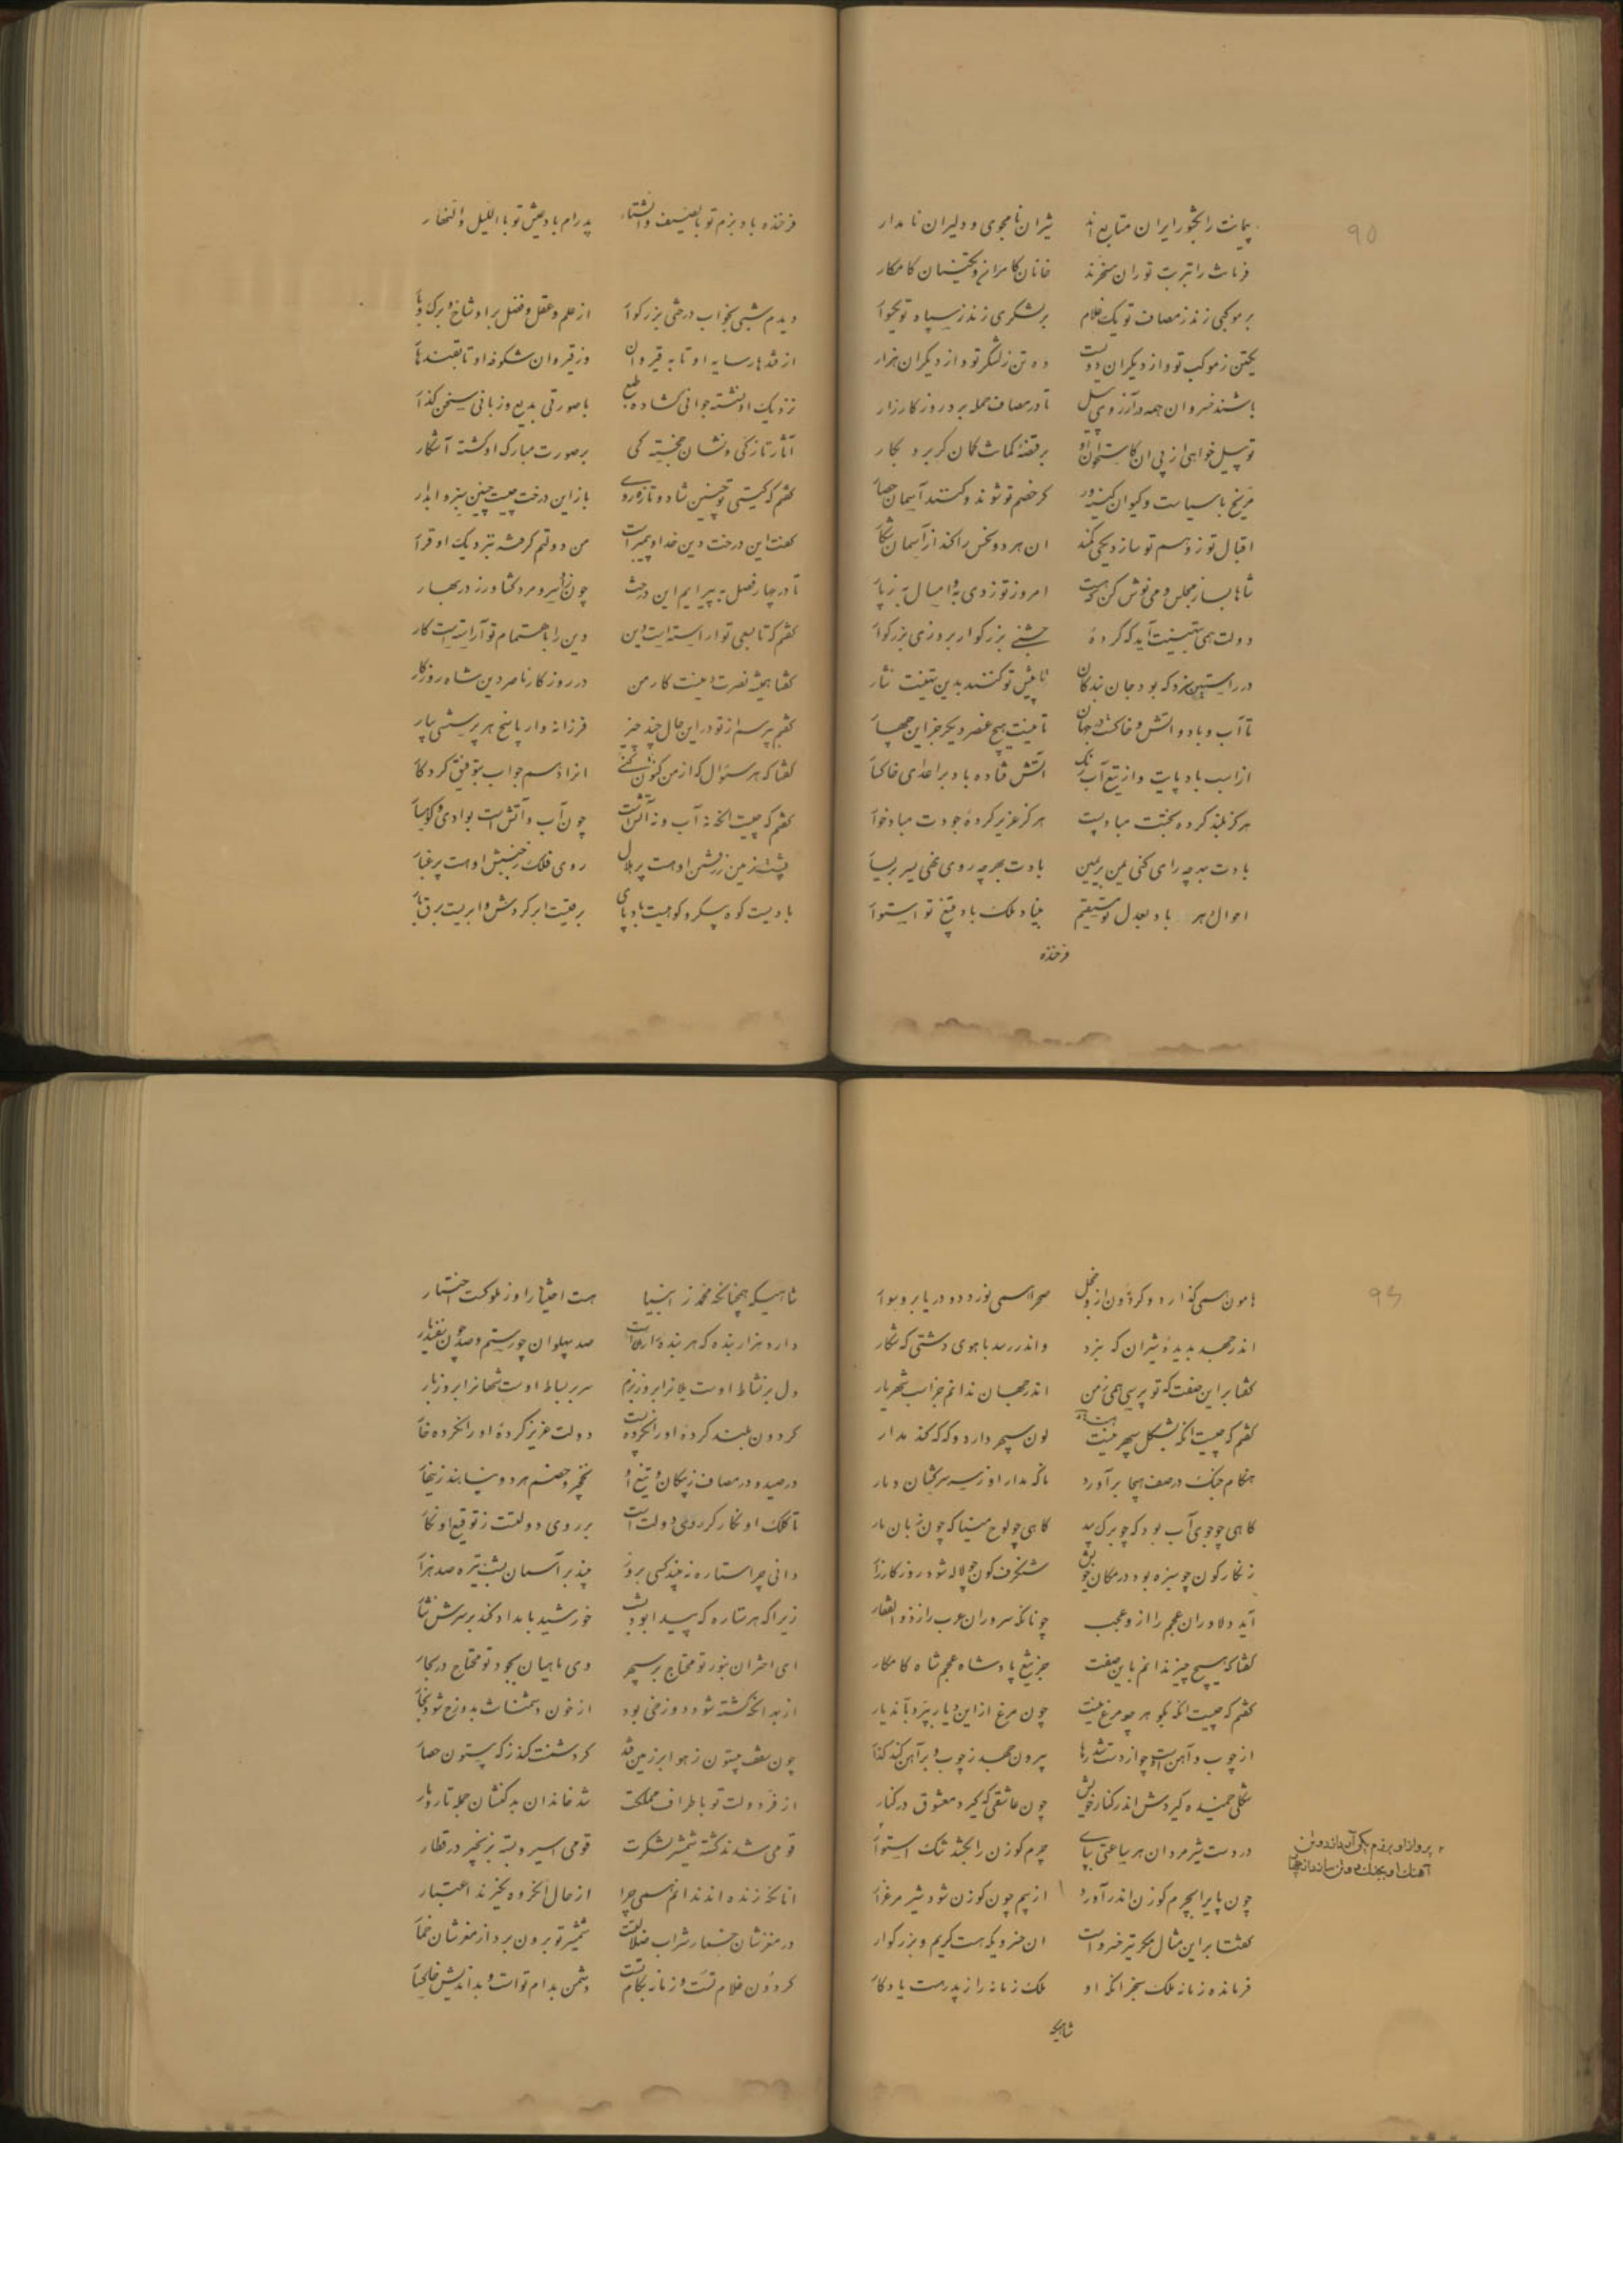 پیمانت را بخور ایران متابع اند شیران نامجوی و دلیران نامدار
90
فرمانت را بتربت توران مسخرند خانان کامران و تکینان کامکار
بر موکبی زند ز مصاف تو یک غلام بر لشکری زند ز سپاه تو یکسوار
یکتن ز موکب تو و از دیگران دویست ده تن ز لشکر تو و از دیگران هزار
باشند خسروان همه در آرزوی پیل تا در مصاف حمله برد روز کارزار
تو پیل خواهی از پی آن کاستخوان او بر قبضهٔ کمانت کمان گر برد بکار
مریخ با سیاست و کیوان کینه‌ور گر خصم تو شوند و کنند آسمان حصار
اقبال تو ز وهم تو سازد یکی کمند آن هر دو نحس را کند از آسمان شکار
شاها بساز مجلس و می نوش کن که هست امروز تو ز دی به و امسال به ز پار
دولت همی بتهنیت آید که کردهٔ جشنی بزرگوار بروزی بزرگوار
در راستین سزد که بود جان بندگان تا پیش تو کنند بدین تهنیت نثار
تا آب و باد و آتش و خاکست در جهان تا نیست هیچ عنصر دیگر جز این چهار
از اسب باد پایت و از تیغ آب رنگ آتش فتاده باد بر اعدای خاکسار
هرگز بلند کرده بختت مباد پست هرگز عزیز کردهٔ جودت مباد خوار
بادت بهر چه رای کنی یمن بر یمین بادت بهر چه روی نهی یسر بر یسار
احوال هر باد بعدل تو مستقیم بنیاد ملک باد بتیغ تو استوار
فرخنده
فرخنده باد بزم تو بالصیف والشتا پدرام باد عیش تو باللیل والنهار
دیدم شبی بخواب درختی بزرگوار از علم و عقل و فضل بر او شاخ و برگ و بار
از قندهار سایه او تا به قیروان وز قیروان شکوفه او تا بقندهار
نزدیک او نشسته جوانی گشاده طبع با صورتی بدیع و زبانی سخن گذار
آثار تازگی و نشان خجستگی بر صورت مبارک او گشته آشکار
گفتم که کیستی تو چنین شاد و تازه‌روی باز این درخت چیست چنین سبز و آبدار
گفت این درخت دین خدا و پیمبر است من دولتم گرفته بنزدیک او قرار
تا در چهار فصل به پیرایم این درخت چون سرو مرد کشاورز در بهار
گفتم که تا بسعی تو آراسته است دین دین را باهتمام تو آراسته است کار
گفتا همیشه نصرت دینست کار من در روزگار ناصر دین شاه روزگار
گفتم بپرسم از تو در این حال چند چیز فرزانه وار پاسخ هر پرسشی بیار
گفتا که هر سؤال که از من کنون کنی آنرا دهم جواب بتوفیق کردگار
گفتم که چیست آنکه نه آب و نه آتش است چون آب و آتش است بوادی و کوهسار
پشت زمین ز رفتن او هست پر هلال روی فلک ز جنبش او هست پر غبار
بادیست کوه پیکر و کوهیست باد پای برقیست ابر گردش و ابریست برق بار
هامون همی گذارد و گردون از و خجل صحرا همی نوردد و دریا بر و سوار
93
اندر جهد بدیدهٔ شیران گه نبرد و اندر رسد باهوی دشتی گه شکار
گفتا بر این صفت که تو پرسی همی ز من اندر جهان ندانم جز اسب شهریار
گفتم که چیست آنکه بشکل سپهر نیست لون سپهر دارد و که که کند مدار
هنگام جنگ در صف هیجا برآورد ناگه مدار او ز سر سرکشان دمار
گاهی چو جوی آب بود گه چو برگ بید گاهی چو لوح مینا گه چون زبان مار
زنگارگون چو سبزه بود در مکان خویش شنگرف گون چو لاله شود روز کارزار
آید دلاوران عجم را از و عجب چونانکه سروران عرب را ز ذوالفقار
گفتا که هیچ چیز ندانم باین صفت جز تیغ پادشاه عجم شاه کامکار
گفتم که چیست آنکه بگوهر چو مرغ نیست چون مرغ از این دیار بپرد بآن دیار
از چوب و آهن است و چو از دست شد رها بیرون جهد ز چوب و بر آهن کند گذار
شکلی خمیده گیردش اندر کنار خویش چون عاشقی که گیرد معشوق در کنار
در دست شیر مردان هر ساعتی بپای چرم گوزن را بکشد تنگ استوار
چون پای را بچرم گوزن اندر آورد از بیم چون گوزن شود شیر مرغزار
گفتا بر این مثال مگر تیر خسرو است آن خسرویکه هست کریم و بزرگوار
فرمانده زمانه ملک سنجر آنکه او ملک زمانه را ز پدر هست یادگار
شاهیکه
شاهیکه همچنانکه محمد ز انبیا هست اختیار او ز ملوکست اختیار
دارد هزار بنده که هر بندهٔ صد پهلوان چو رستم و صد چون سفندیار
دل بر نشاط اوست یلانرا بروز بزم سر بر بساط اوست شهانرا بروز بار
گردون بلند کردهٔ او را نکرده پست دولت عزیز کردهٔ او را نکرده خوار
در صید و در مصاف ز پیکان و تیغ او نخجیر و خصم هر دو نیابند زینهار
تا کلک او نگارگر روی دولت است بر روی دولتست ز توقیع او نگار
دانی چرا ستاره نه بیند کسی بروز چند بر آسمان بشب تیره صد هزار
زیرا که هر ستاره که پیدا بود بشب خورشید بامداد کند بر سرش نثار
ای اختران بنور تو محتاج بر سپهر وی ماهیان بجود تو محتاج در بحار
از بهر آنکه کشته شود دوزخی بود از خون دشمنانت بدوزخ شود بخار
چون سقف بیستون ز هوا بر زمین فتد گر دشمنت کند ز که بیستون حصار
از فر دولت تو باطراف مملکت شد خاندان بد کنشان جمله تار و مار
قومی شدند کشته شمشیر لشکرت قومی اسیر و بسته بزنجیر در قطار
آنانکه زنده‌اند ندانم همی چرا از حال آنکه مرده نگیرند اعتبار
در مغزشان خمار شراب ضلالت شمشیر تو برون برد از مغزشان خمار
گردون غلام تست و زمانه بکام تست دشمن بدام تو است و بداندیش خاکسار